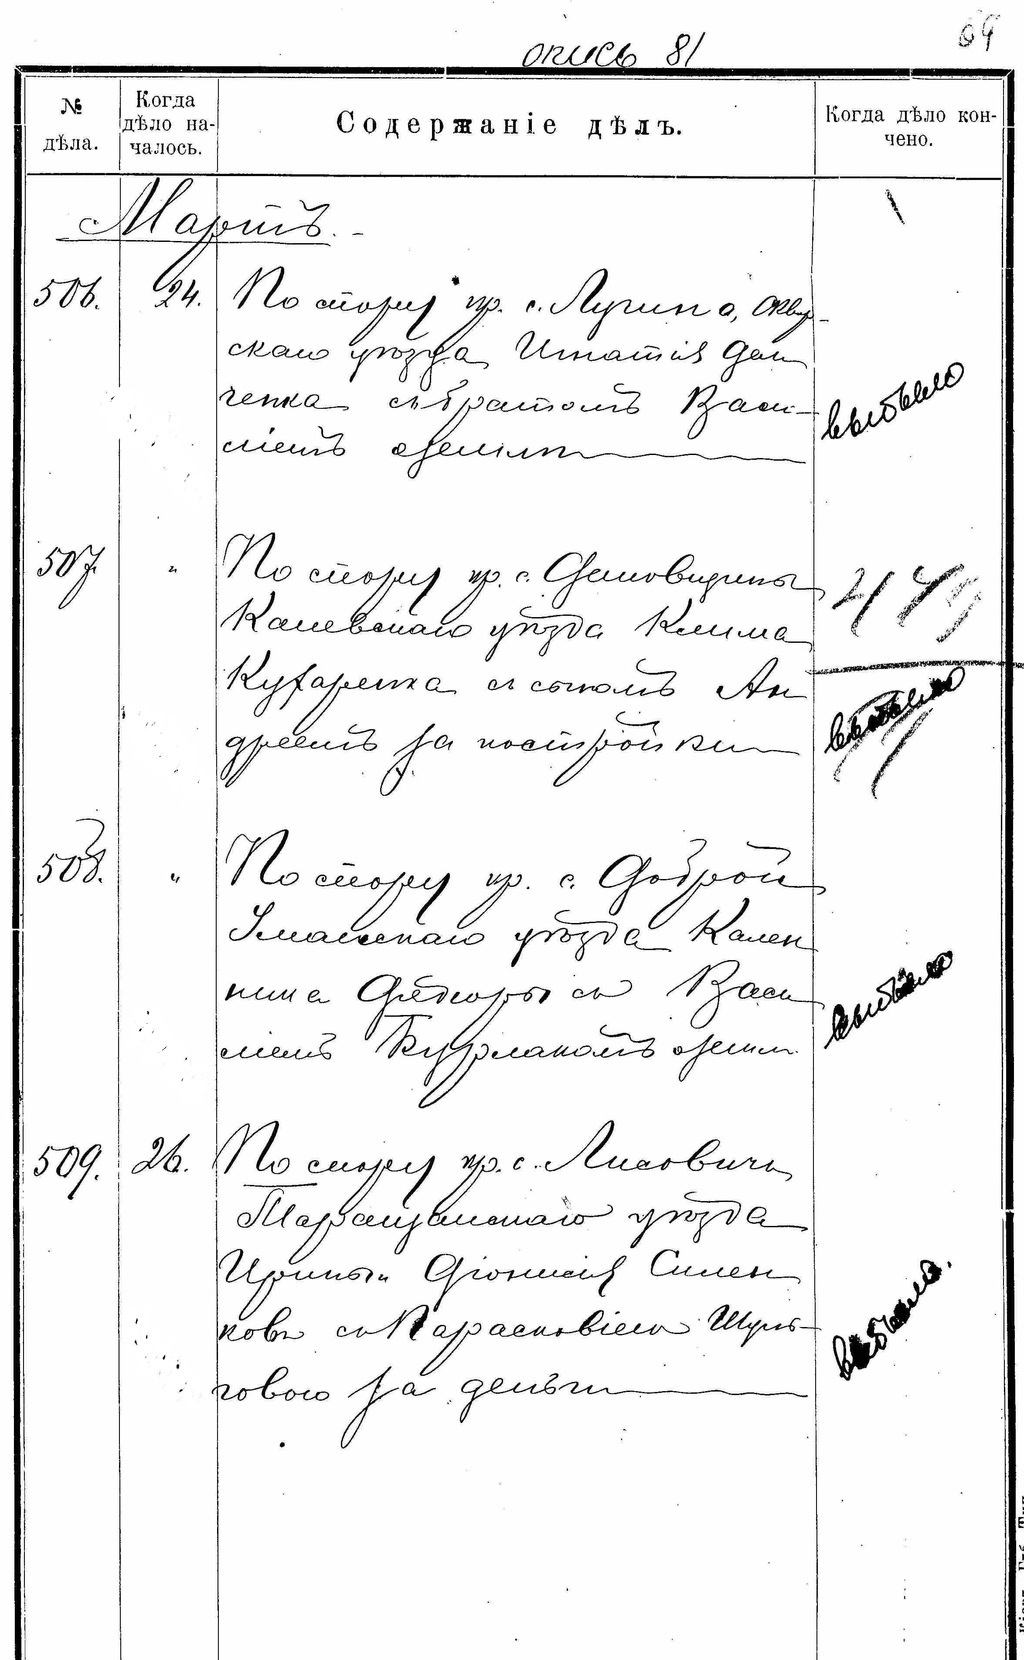 опись 81
69
№ дѣла.
Когда дѣло на-
чалось.
Содержаніе дѣлъ.
Когда дѣло кон-
чено.
Мартъ.
506. 24. По спору кр. с. Лучина, Сквир-
скаго уѣзда Игнатія Дем
ченка съ братомъ Васи-
ліемъ о землѣ
выбыло
507. " По спору кр. с.
Каневскаго уѣзда Клима
Кухаренка съ сыномъ Ан
дреемъ за постройки
449
выбыло
508. " По спору кр. с. Доброй
Уманскаго уѣзда Кален
ника съ Васи
ліемъ Бурлакомъ о земл.
выбыло
509. 26. По спору кр. с. Лисовичъ
Таращанскаго уѣзда
Ирины и Діонисія Симен
ковъ съ Парасковіею Шуль-
говою за деньги
выбыло.